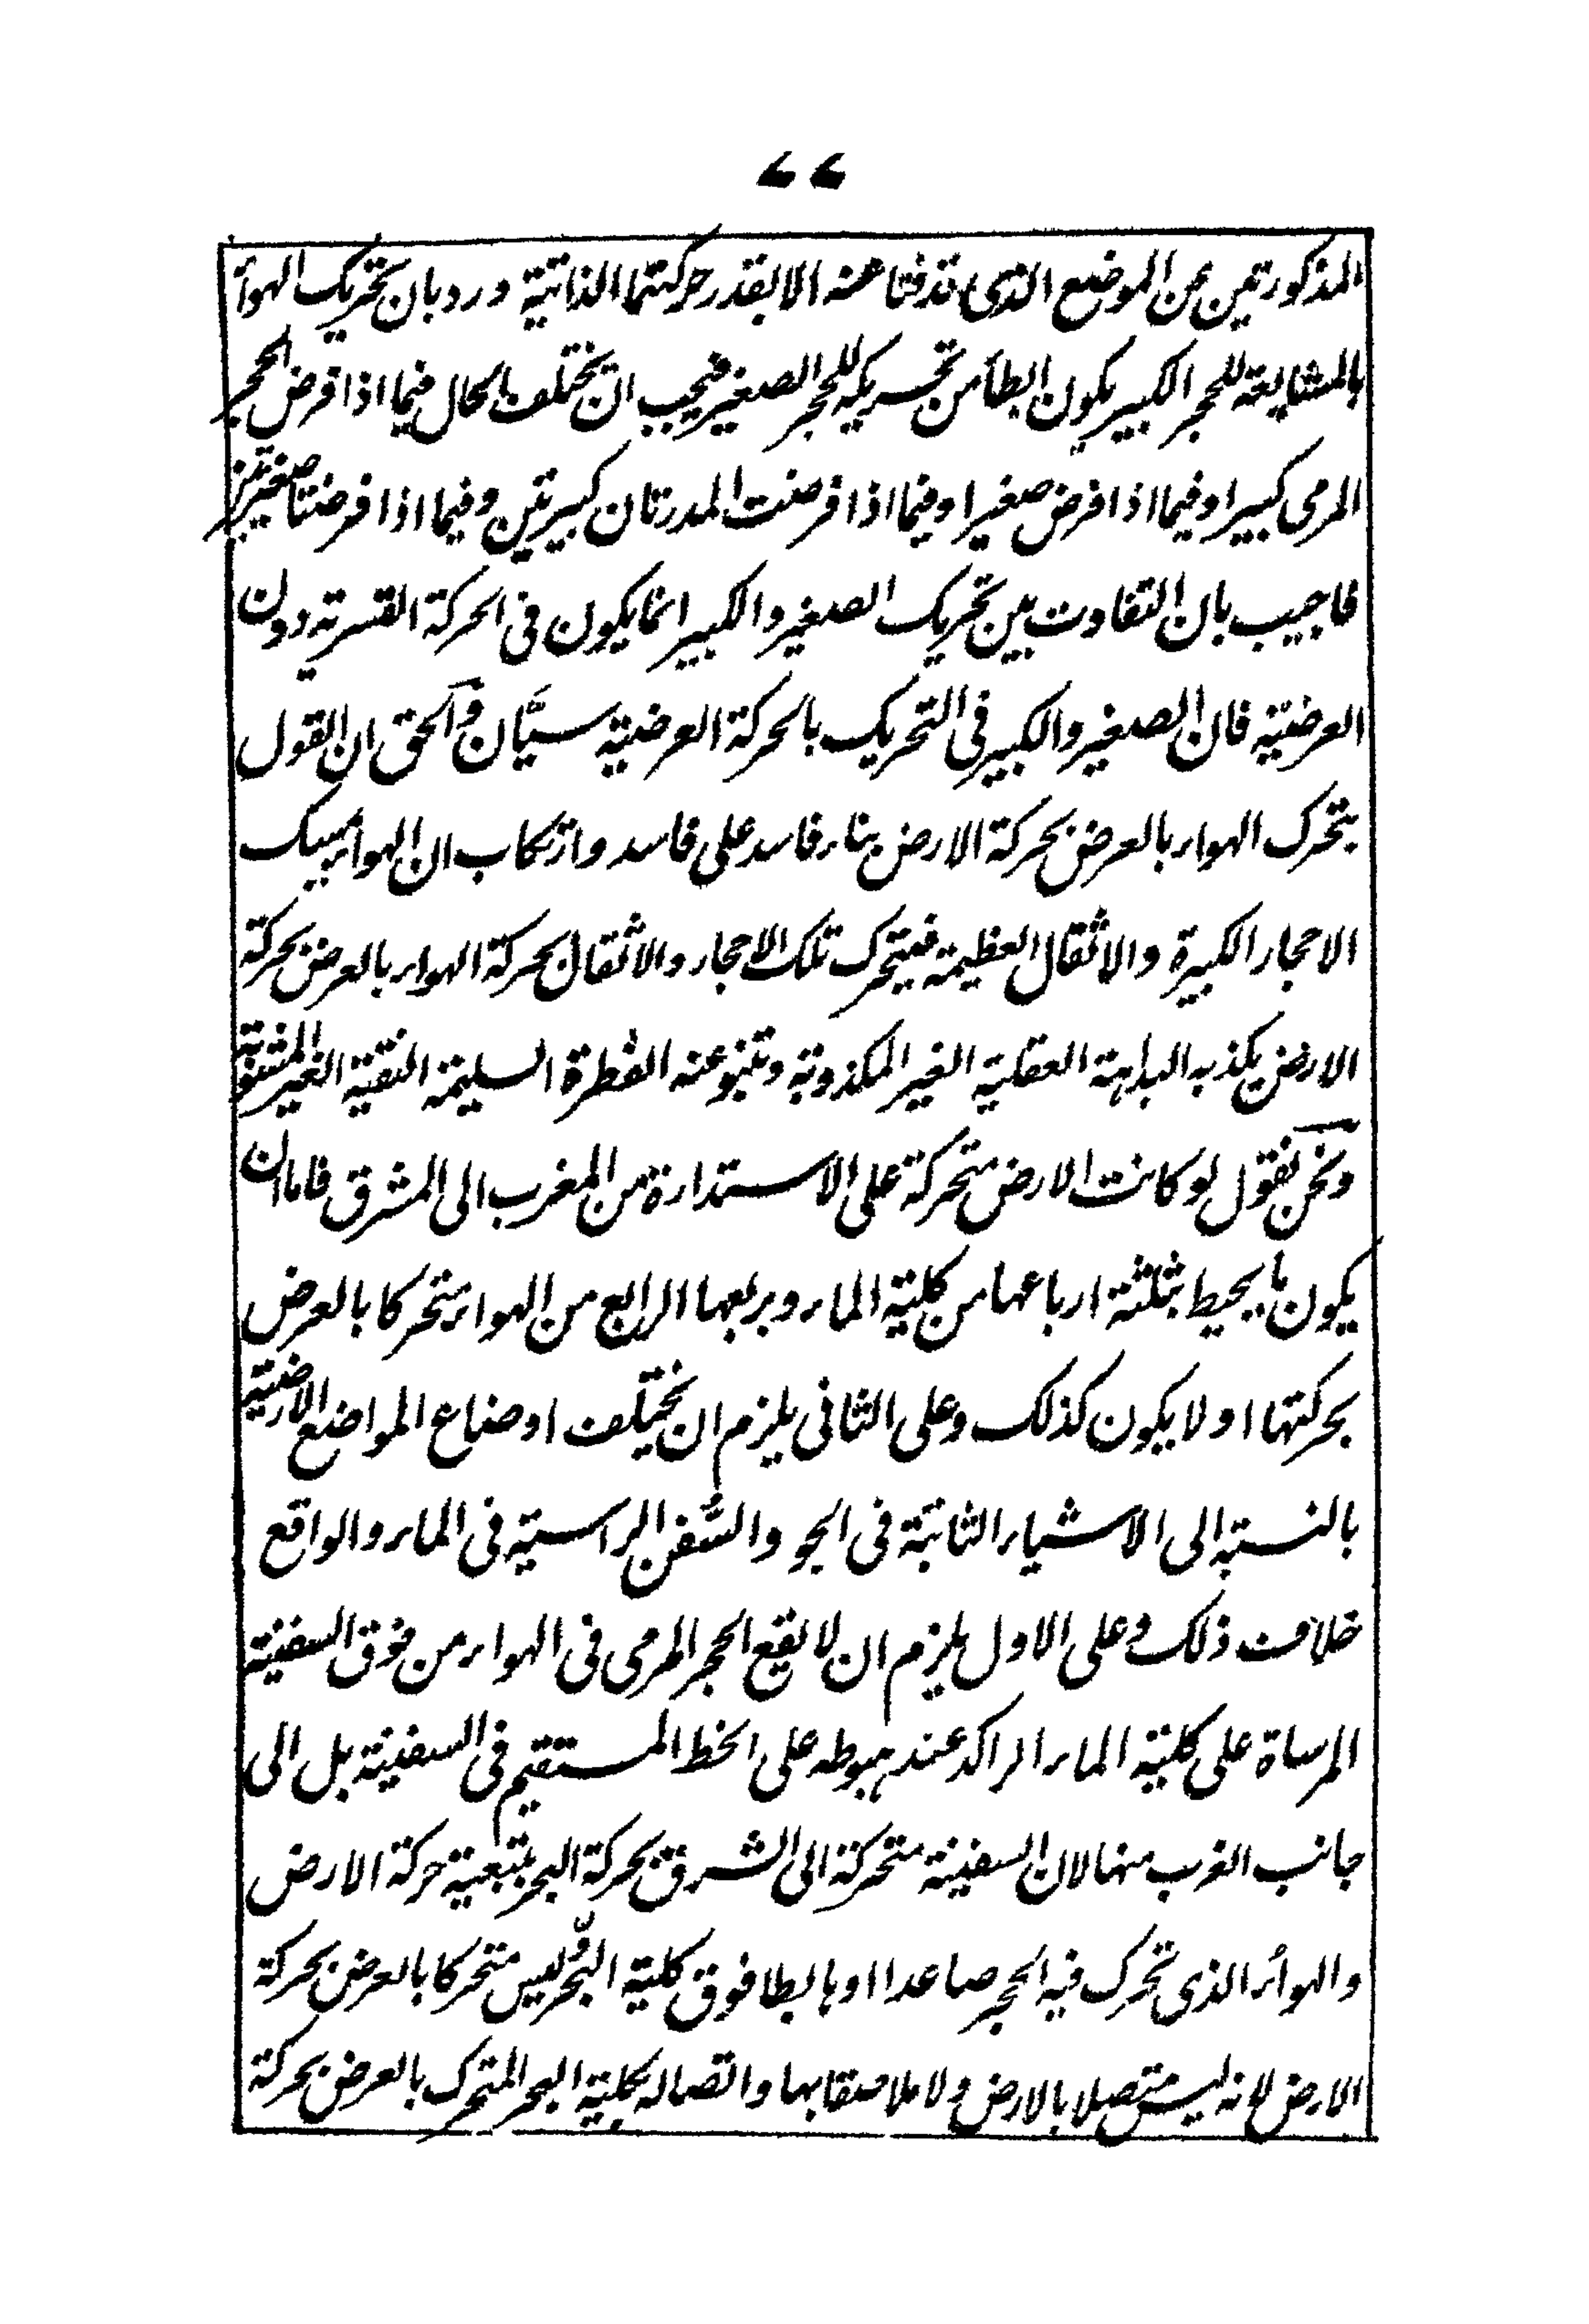 ٧٧
المذكورتين عن الموضع الذى قذفتا عنه الا بقدر حركتهما الذاتية ورد بان تحريك الهواء
بالمشايعة للحجر الكبير يكون ابطأ من تحريكه للحجر الصغير فيجب ان يختلف الحال فيما اذا فرض الحجر
المرمى كبيرا وفيما اذا فرض صغيرا وفيما اذا فرضت المدرتان كبيرتين وفيما اذا فرضتا صغيرتين
فاجيب بان التفاوت بين تحريك الصغير والكبير انما يكون فى الحركة القسرية دون
العرضيّة فان الصغير والكبير فى التحريك بالحركة العرضية سيّان والحق ان القول
بتحرك الهواء بالعرض بحركة الارض بناء فاسد على فاسد وارتكاب ان الهواء يمسك
الاحجار الكبيرة والاثقال العظيمة فيتحرك تلك الاحجار والاثقال بحركة الهواء بالعرض بحركة
الارض يكذبه البداهة العقلية الغير المكذوبة وتنبو عنه الفطرة السليمة النقية الغير المشوبة
ونحن نقول لو كانت الارض متحركة على الاستدارة من المغرب الى المشرق فاما ان
يكون ما يحيط بثلثة ارباعها من كلية الماء وبربعها الرابع من الهواء متحركا بالعرض
بحركتها او لا يكون كذلك وعلى الثانى يلزم ان يختلف اوضاع المواضع الارضية
بالنسبة الى الاشياء الثابتة فى الجو والسُّفن الراسية فى الماء والواقع
خلاف ذلك وعلى الاول يلزم ان لا يقع الحجر المرمى فى الهواء من فوق السفينة
المرساة على كلية الماء الراكد عند هبوطه على الخط المستقيم فى السفينة بل الى
جانب الغرب منها لان السفينة متحركة الى الشرق بحركة البحر بتبعية حركة الارض
والهواء الذى تحرك فيه الحجر صاعدا او هابطا فوق كلية البحر ليس متحركا بالعرض بحركة
الارض لانه ليس متصلا بالارض ولا ملاصقا بها واتصاله بكلية البحر المتحرك بالعرض بحركة